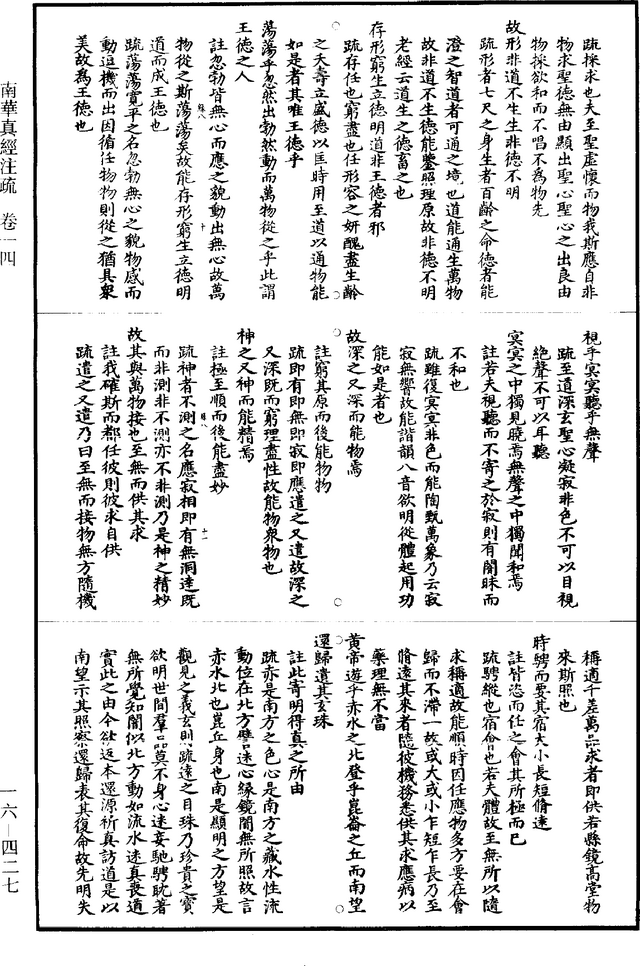 疏採求也夫至聖虛懷而物我斯應自非
物求聖德無由顯出聖心聖心之出良由
物採欲和而不唱不為物先
故形非道不生生非德不明
疏形者七尺之身生者百齡之命德者能
澄之智道者可通之境也道能通生萬物
故非道不生德能鑒照理原故非德不明
老經云道生之德畜之也
存形窮生立德明道非王德者邪
疏存任也窮盡也任形容之妍醜盡生齡
之夭壽立盛德以匡時用至道以通物能
如是者其唯王德乎
蕩蕩乎忽然出勃然動而萬物從之乎此謂
王德之人
註忽勃皆無心而應之貌動出無心故萬
物從之斯蕩蕩矣故能存形窮生立德明
道而成王德也
疏蕩蕩寬平之名忽勃無心之貌物感而
動逗機而出因循任物物則從之猶具眾
美故為王德也
視乎冥冥聽乎無聲
疏至道深玄聖心凝寂非色不可以目視
絶聲不可以耳聽
冥冥之中獨見曉焉無聲之中獨聞和焉
註若夫視聽而不寄之於寂則有闇昧而
不和也
疏雖復冥冥非色而能陶甄萬象乃云寂
寂無響故能諧韻八音欲明從體起用功
能如是者也
故深之又深而能物焉
註窮其原而後能物物
疏即有即無即寂即應遣之又遣故深之
又深既而窮理盡性故能物眾物也
神之又神而能精焉
註極至順而後能盡妙
疏神者不測之名應寂相即有無洞達既
而非測非不測亦不非測乃是神之精妙
故其與萬物接也至無而供其求
註我確斯而都任彼則彼求自供
疏遣之又遣乃曰至無而接物無方隨機
稱適千差萬品求者即供若縣鏡高堂物
來斯照也
時騁而要其宿大小長短脩遠
註皆恣而任之會其所極而已
疏騁縱也宿會也若夫體故至無所以隨
求稱適故能順時因任應物多方要在會
歸而不滯一故或大或小乍短乍長乃至
脩遠其來者隨彼機務悉供其求應病以
藥理無不當
黃帝遊乎赤水之北登乎崑崙之丘而南望
還歸遺其玄珠
註此寄明得真之所由
疏赤是南方之色心是南方之藏水性流
動位在北方譬迷心緣鏡闇無所照故言
赤水北也崑丘身也南是顯明之方望是
觀見之義玄則疏遠之目珠乃珍貴之寶
欲明世間羣品莫不身心迷妄馳騁耽著
無所覺知闇似北方動如流水迷真喪道
實此之由今欲返本還源祈真訪道是以
南望示其照察還歸表其復命故先明失
南華真經注疏 卷一四
一六—四二七